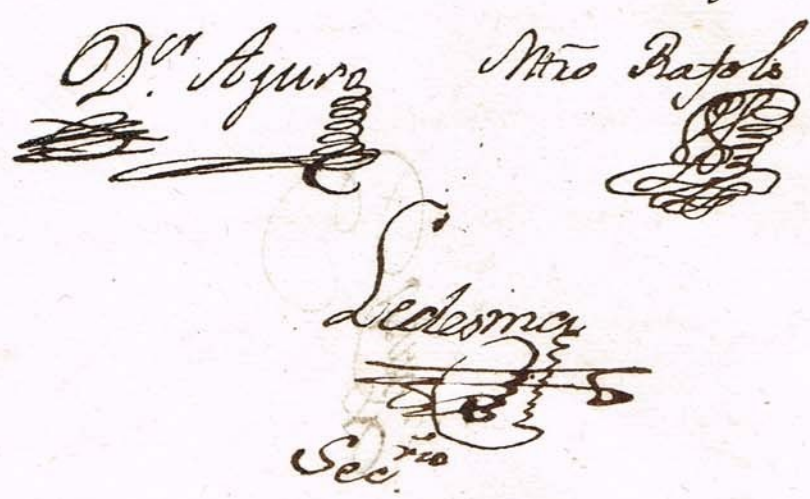 D.ᵒʳ Ayuso Mtrō Rafols
Ledesma
Sec.ʳⁱᵒ